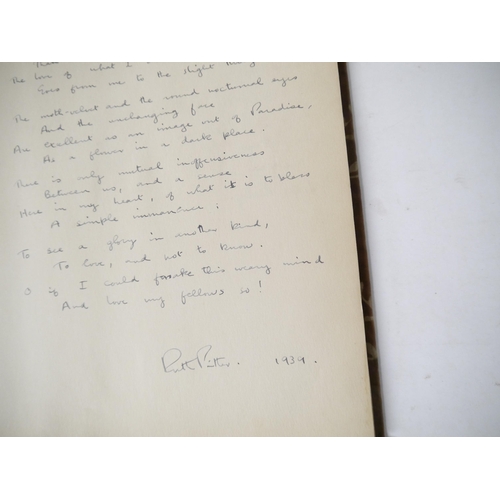 The love of what I
Goes from me to the slight thing
The moth-velvet and the round nocturnal eyes
And the unchanging face
As excellent as an image out of Paradise,
As a flower in a dark place.
There is only mutual inoffensiveness
Between us, and a sense
Here in my heart, of what it is to bless
A simple immanence;
To see a glory in another kind,
To love, and not to know.
O if I could forsake this weary mind
And love my fellows so!
Ruth Pitter. 1939.